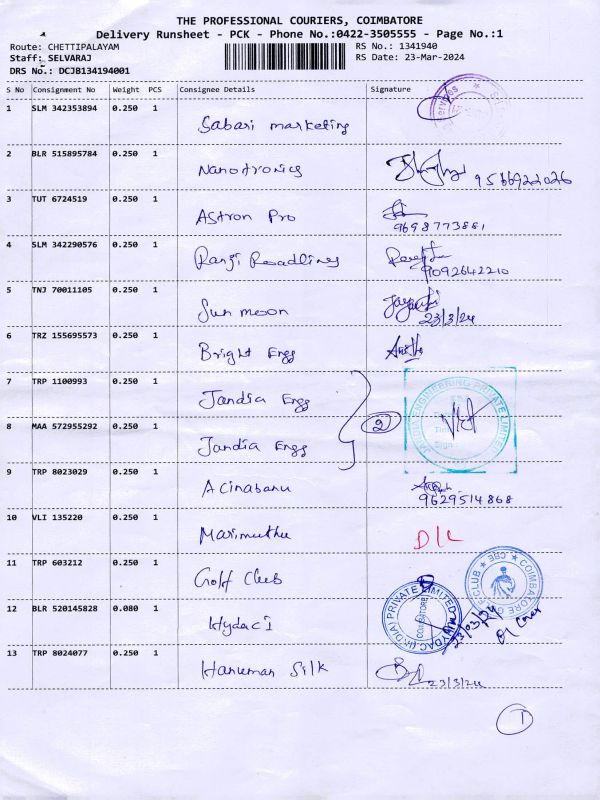 THE PROFESSIONAL COURIERS, COIMBATORE
Delivery Runsheet - PCK - Phone No.:0422-3505555 - Page No.:1
Route: CHETTIPALAYAM RS No.: 1341940
Staff: SELVARAJ RS Date: 23-Mar-2024
DRS No.: DCJB134194001
S No Consignment No Weight PCS Consignee Details Signature
1 SLM 342353894 0.250 1 Sabari marketing
2 BLR 515895784 0.250 1 Nanotronics 9566922026
3 TUT 6724519 0.250 1 Astron Pro 9698773881
4 SLM 342290576 0.250 1 Ranji Readlines 9092642210
5 TNJ 70011105 0.250 1 Sun meson 23/3/24
6 TRZ 155695573 0.250 1 Bright Engg
7 TRP 1100993 0.250 1 Jandia Engg
8 MAA 572955292 0.250 1 Jandia Engg 2
ENGINEERING PRIVATE LIMITED
9 TRP 8023029 0.250 1 Acinabanu 9629514868
10 VLI 135220 0.250 1 Marimuthu D/L
11 TRP 603212 0.250 1 Golf Club
COIMBATORE GOLF CLUB
12 BLR 520145828 0.080 1 Hydac i
HYDAC (INDIA) PRIVATE LIMITED
COIMBATORE
23/03/24
13 TRP 8024077 0.250 1 Hanuman Silk 23/3/24
1